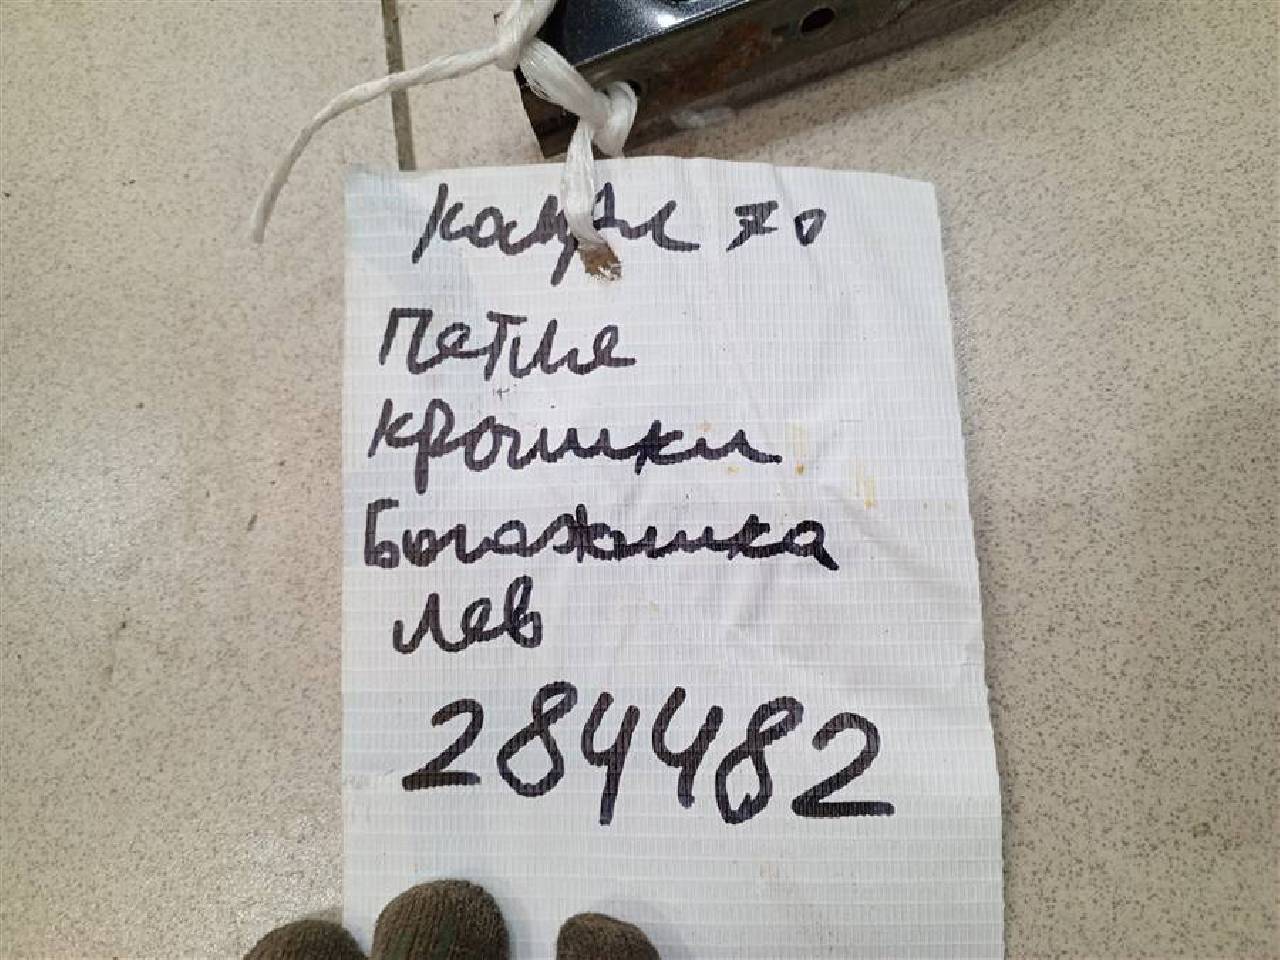 Камри 70
Петля
крошки
Богажника
лев
284482